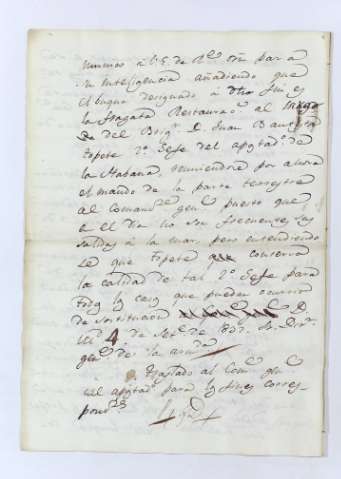 á V.E. de Rl. orn para
su inteligencia añadiendo que
el buque designado á dho fin es
la fragata Restauraon al mando
del Brigr. D. Juan Bautista
Topete 2º. Gefe del apostado. de
la Habana, reuniendose por ahora
el mando de la parte terrestre
al Comandte genl puesto que
en el dia no son frecuentes las
salidas á la mar, pero entendiendo
se que Topete conserva
la calidad de tal 2º Gefe para
todos los casos que puedan ocurrir
de sostitucion
4 de Setre. de
genl de la armda
Traslado al Com. genl
del apostado. para los fines corres
pondes